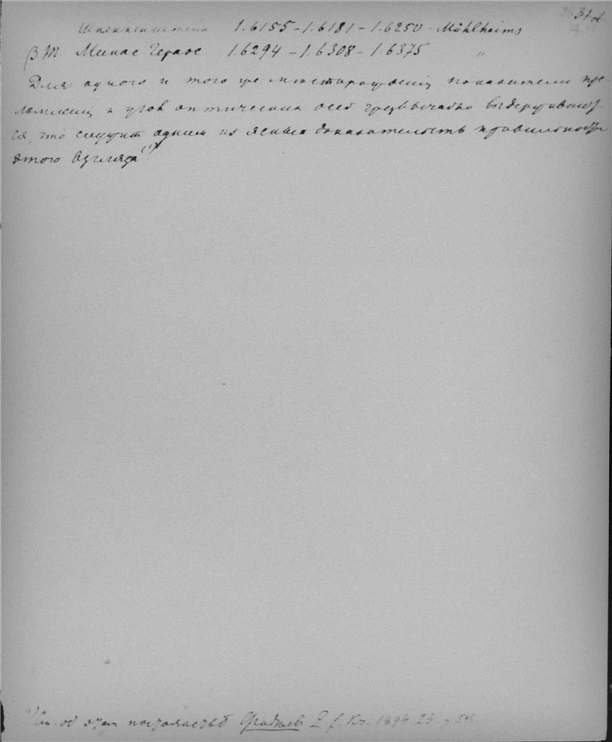 Шнеккенштейн 1.6155-1.6181-1.6250-Mühlheims 31
ВТ. Минас Гераос 1.6294-1.6308-1.6375 "
Для одного и того же месторождения показатели пре
ломления и угол оптических осей чрезвычайно выдерживают
ся, что служит одним из ясных доказательств правильности
этого взгляда¹⁾
¹⁾ См. об этом Z. f. Kr. 1894. 23.